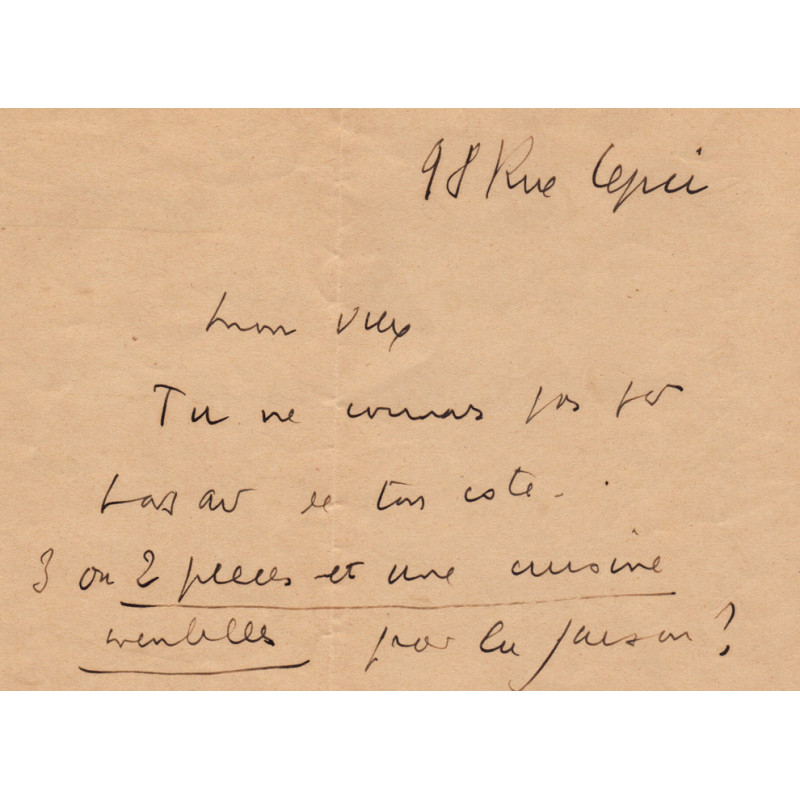 98 Rue Lepic
Mon vieux
Tu ne connais pas par
hasard de ton coté -.
3 ou 2 pieces et une cuisine
meublees pour la saison ?